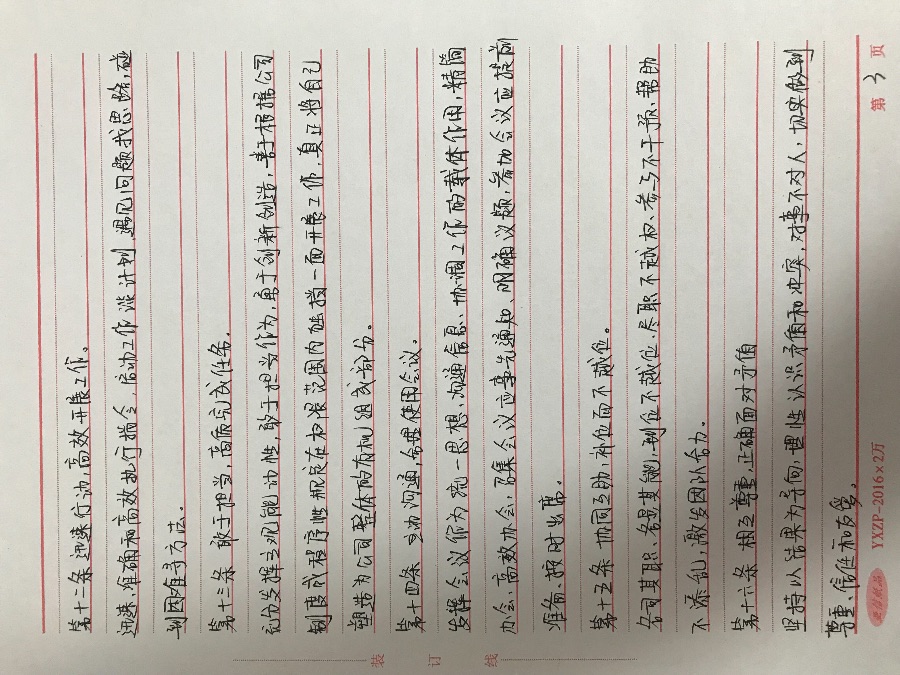 第十二条 迅速行动,高效开展工作。
迅速、准确和高效执行指令,启动工作派计划,遇见问题找思路,碰
到困难寻方法。
第十三条 敢于担当,高质完成任务。
充分发挥主观能动性,敢于担当作为,勇于创新创造,善于根据公司
制度或程序性那辰在权限范围内独挡一面开展工作,真正将自己
塑造为公司整体的有机组成部分。
第十四条 主动沟通,合理使用会议。
发挥会议作为统一思想、沟通信息、协调工作的载体作用,精简
办会、高效办会,召集会议应事先通知、明确议题,参加会议应提前
准备、按时出席。
第十五条 协同互助,补位而不越位。
各司其职、各尽其能,到位不越位、尽职不越权、参与不干预、帮助
不添乱,激发团队合力。
第十六条 相互尊重,正确面对矛盾
坚持以结果为导向,理性认识矛盾和冲突,对事不对人,切实做到
尊重、信任和友爱。
YXZP-2016×2万
第 3 页
装 订 线